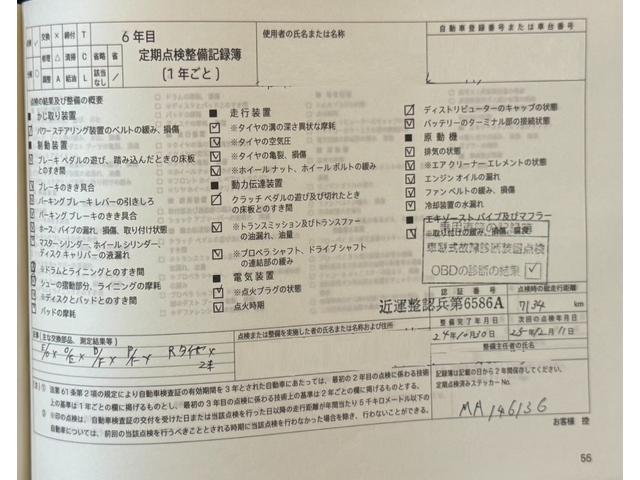 点検 ✓ 交換 × 締付 T
修理 △ 清掃 C 省略 省
分解 ○ 調整 A 給油 L 該当なし /
6年目
定期点検整備記録簿
(1年ごと)
使用者の氏名または名称
自動車登録番号または車台番号
点検の結果及び整備の概要
■ かじ取り装置
パワーステアリング装置のベルトの緩み、損傷
■ 制動装置
ブレーキ ペダルの遊び、踏み込んだときの床板とのすき間
ブレーキのきき具合
パーキング ブレーキ レバーの引きしろ
パーキング ブレーキのきき具合
ホース、パイプの漏れ、損傷、取り付け状態
マスター シリンダー、ホイール シリンダー、ディスク キャリパーの液漏れ
※ドラムとライニングとのすき間
シューの摺動部分、ライニングの摩耗
※ディスクとパッドとのすき間
パッドの摩耗
■ 走行装置
※タイヤの溝の深さ異状な摩耗
※タイヤの空気圧
※タイヤの亀裂、損傷
※ホイール ナット、ホイール ボルトの緩み
■ 動力伝達装置
クラッチ ペダルの遊び及び切れたときの床板とのすき間
※トランスミッション及びトランスファーの油漏れ、油量
※プロペラ シャフト、ドライブ シャフトの連結部の緩み
■ 電気装置
※点火プラグの状態
点火時期
ディストリビューターのキャップの状態
バッテリーのターミナル部の接続状態
■ 原動機
排気の状態
※エア クリーナー エレメントの状態
エンジン オイルの漏れ
ファン ベルトの緩み、損傷
冷却装置の水漏れ
■ エキゾースト パイプ及びマフラー
※取り付けの緩み、損傷、腐食
OBDの診断の結果 ✓
(主な交換部品、測定結果等)
E/O× O/E× D/F× P/F×
2本
点検または整備を実施した者の氏名または名称および住所
認証番号
近運整認兵第6586A
点検時の総走行距離
7134 km
整備完了年月日
24年10月30日
次回の点検年月日
25年12月11日
整備主任者の氏名
記録簿は記載の日から2年間保存してください。
定期点検済ステッカー No.
MA146136
お客様 控
(注) ① 法第61条第2項の規定により自動車検査証の有効期間を3年とされた自動車にあたっては、最初の2年目の点検に係わる技術上の基準は1年ごとの欄に掲げるものとし、最初の3年目の点検に係る技術上の基準は2年ごとの欄に掲げるものとする。
② ※印の点検は、自動車検査証の交付を受けた日または当該点検を行った日以降の走行距離が年間当たり5千キロメートル以下の自動車については、前回の当該点検を行うべきこととされる時期に当該点検を行わなかった場合を除き、行わないことができる。
55